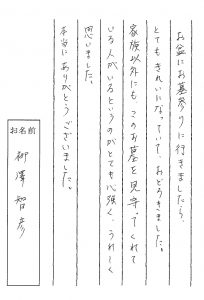 お盆にお墓参りに行きましたら、
とてもきれいになっていて、おどろきました。
家族以外にもこのお墓を見守ってくれて
いる人がいるというのがとても心強く、うれしく
思いました。
本当にありがとうございました。
お名前
柳澤智彦